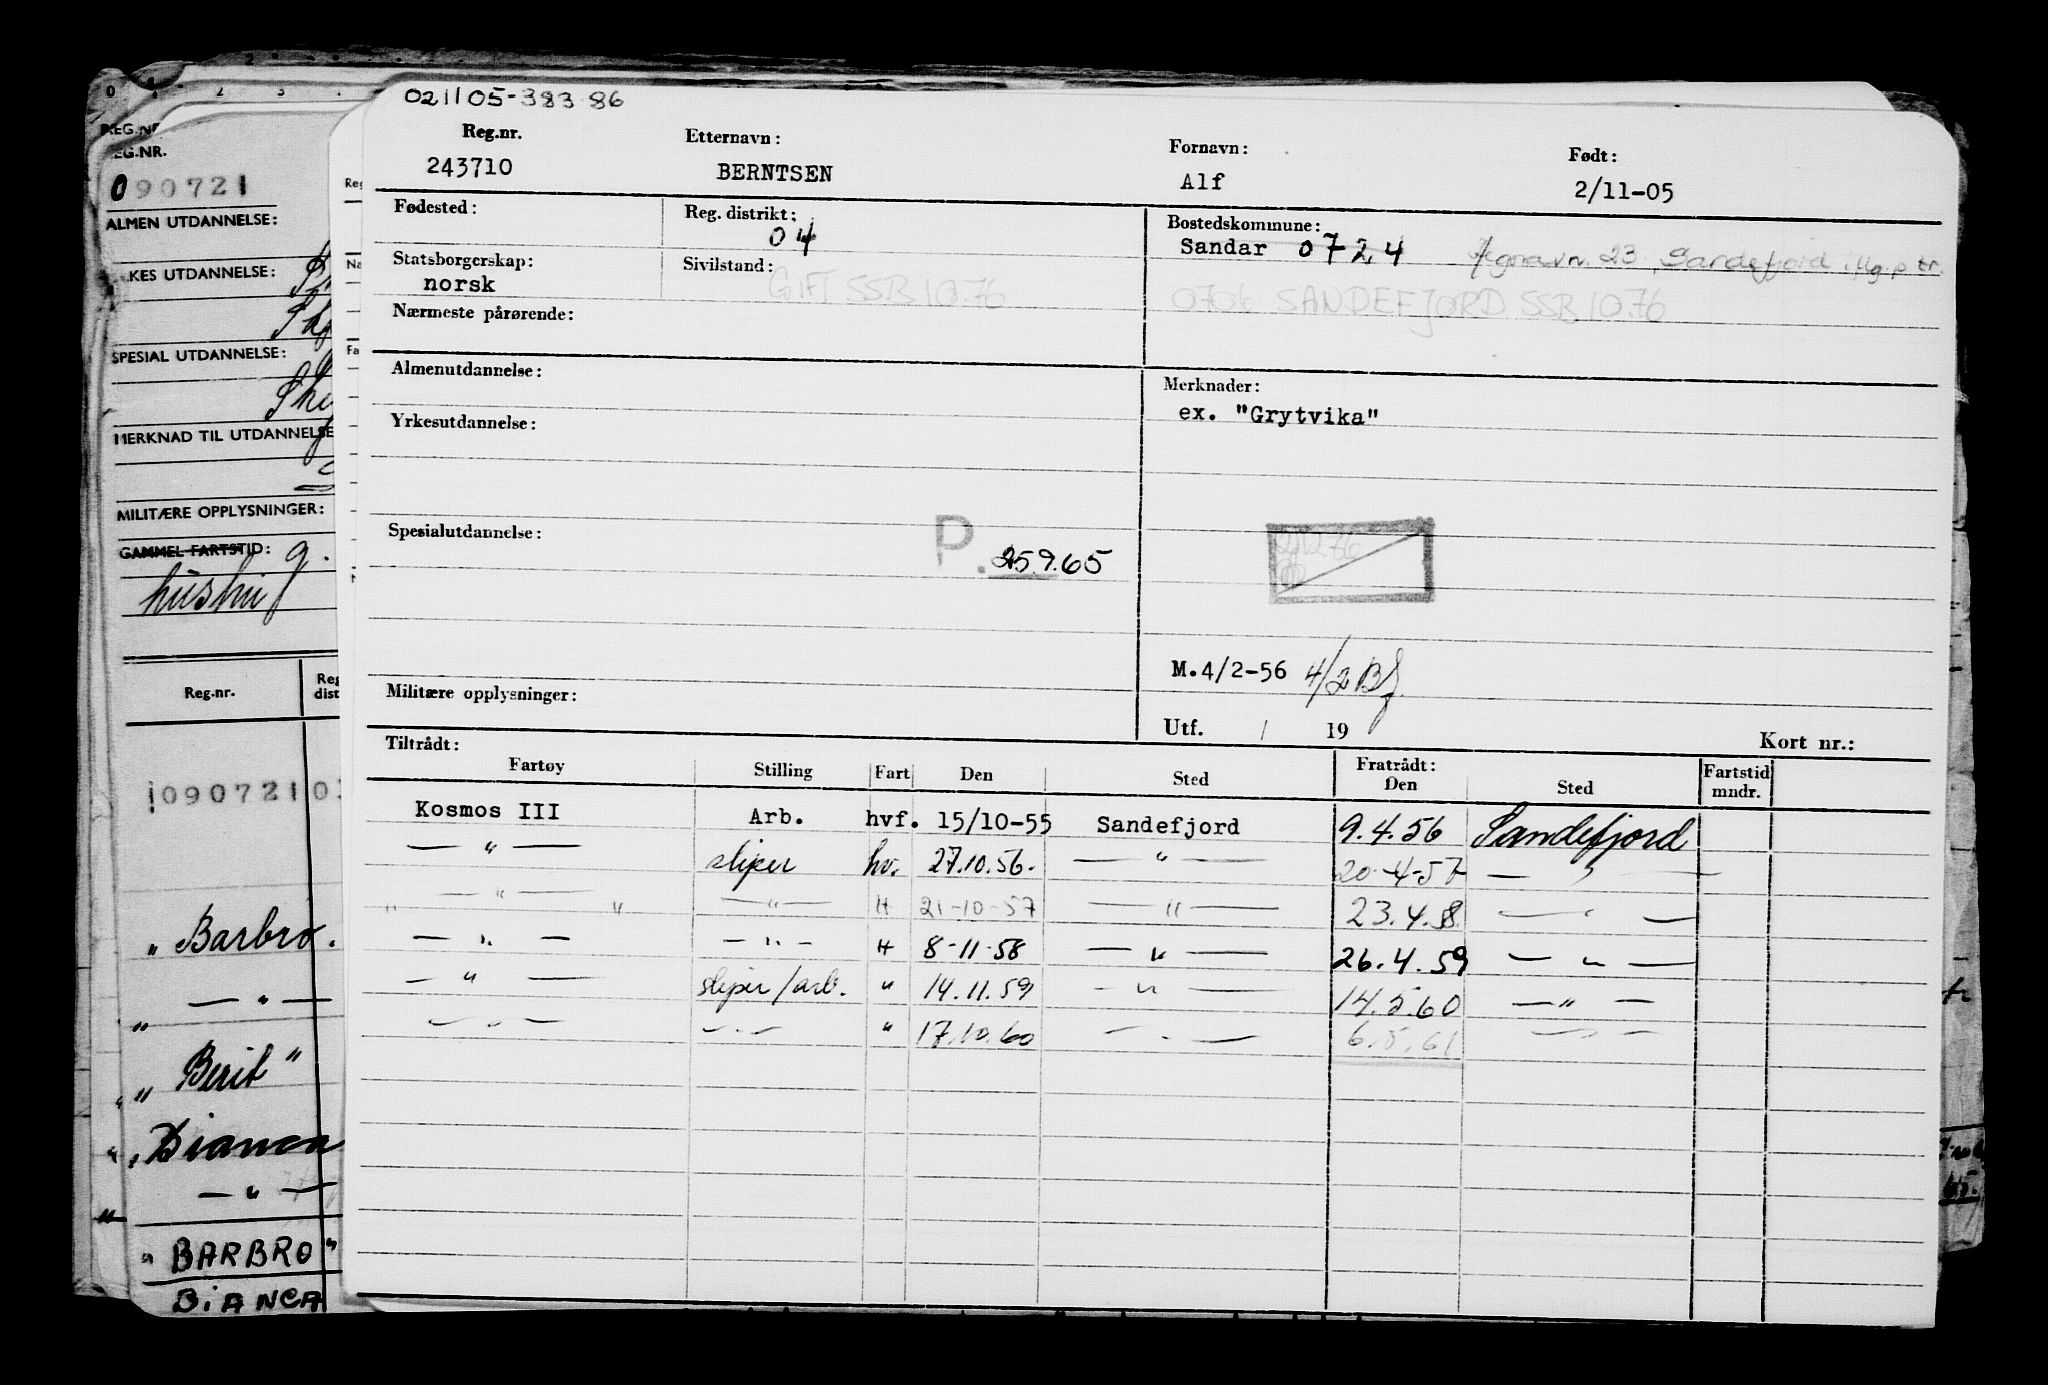 021105-38386
Reg.nr. Etternavn: Fornavn: Født:
243710 BERNTSEN Alf 2/11-05
Fødested: Reg. distrikt: 04 Bostedskommune:
Sandar 0724 23 Sandefjord
Statsborgerskap: norsk Sivilstand: GIFT SSB 10.76 0706 SANDEFJORD SSB 10.76
Nærmeste pårørende:
Almenutdannelse: Merknader:
ex. "Grytvika"
Yrkesutdannelse:
Spesialutdannelse: P. 25.9.65
M.4/2-56 4/2
Militære opplysninger:
Utf. / 19 Kort nr.:
Tiltrådt: Fratrådt:
Fartøy Stilling Fart Den Sted Den Sted Fartstid mndr.
Kosmos III Arb. hvf. 15/10-55 Sandefjord 9.4.56 Sandefjord
— " — sliper hv. 27.10.56. — " — 20-4-57 — " —
— " — — " — " 21-10-57 — " — 23.4.58. — " —
— " — — " — " 8-11-58 — " — 26.4.59 — " —
— " — sliper/arb. " 14.11.59 — " — 14.5.60 — " —
— " — — " — " 17.10.60 — " — 6.5.61 — " —
REG.NR.
090721
ALMEN UTDANNELSE:
KES UTDANNELSE:
SPESIAL UTDANNELSE:
MERKNAD TIL UTDANNELSE
MILITÆRE OPPLYSNINGER:
GAMMEL FARTSTID: 9.
Reg.nr. Reg dist
090721 0
" Barbro.
" — " —
" Berit "
" Bianca
— " —
" BARBRO "
BIANCA